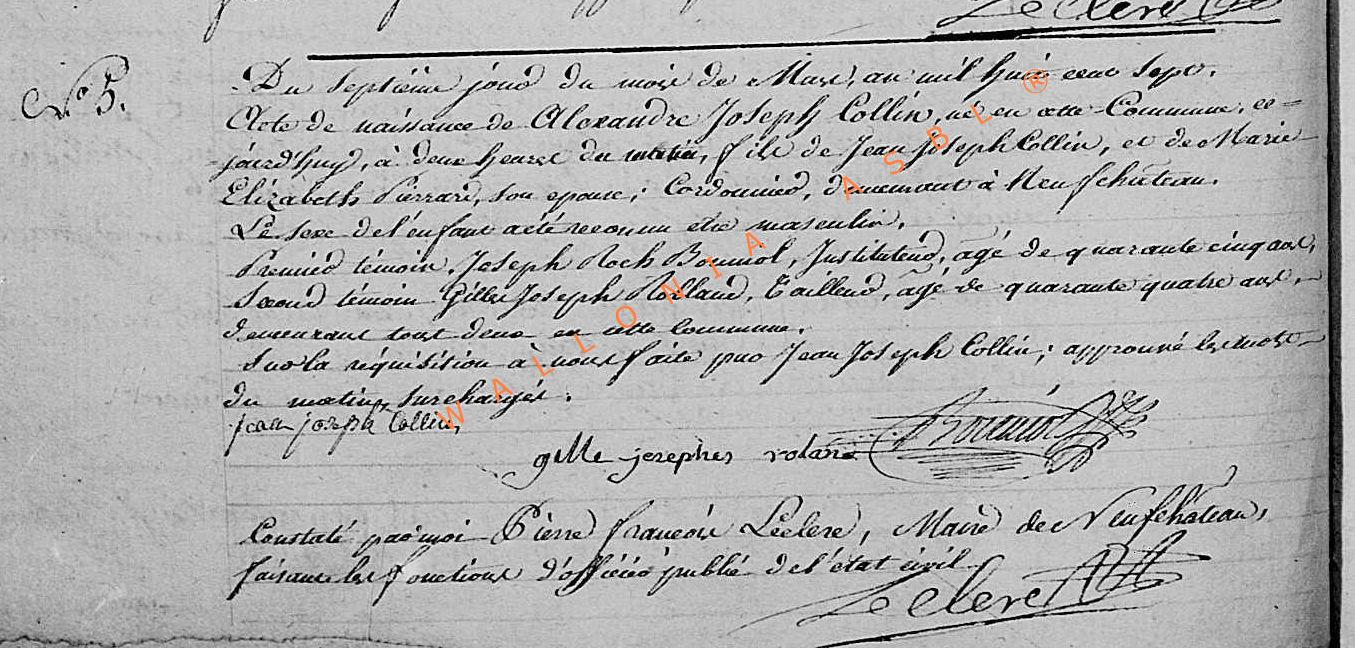 Leclere
N° 5.
Du Septième jour du mois de Mars, an mil huit cent sept.
Acte de naissance de Alexandre Joseph Collin, né en cette Commune, ce=
jourd'huy, à deux heures du matin, fils de Jean Joseph Collin, et de Marie
Elizabeth Pierrard, son epouse; Cordonnier, demeurant à Neufchâteau.
Le sexe de l'enfant a été reconnu etre masculin.
Premier témoin, Joseph Roch Bouniol, Instituteur, agé de quarante cinq ans,
Second témoin Gilles Joseph Rolland, Tailleur, âgé de quarante quatre ans,
demeurant tous deux en cette Commune.
Sur la réquisition à nous faite par Jean Joseph Collin; approuvé les mots
du matin, surchargés.
jean joseph Collin,
gille josephes rolans
Bouniol
Constaté par moi Pierre françois Leclere, Maire de Neufchâteau,
faisant les fonctions d'officier public de l'état civil.
Leclere
WALLONIA ASBL ®